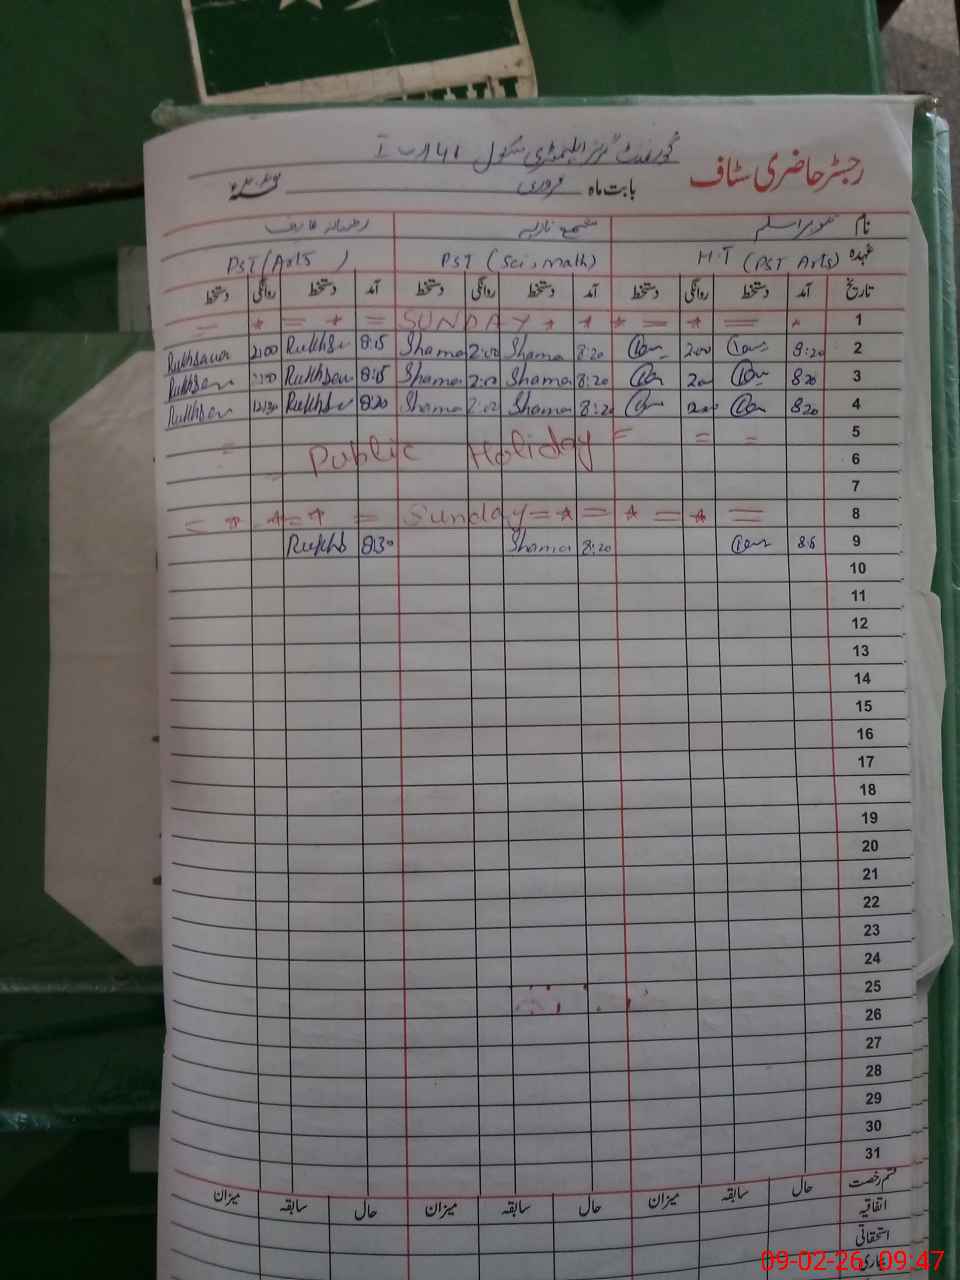 گورنمنٹ گرلز ایلیمنٹری سکول 141 ر ب I
رجسٹر حاضری سٹاف
بابت ماہ فروری
نام تنویر اسلم شمع نادیہ رخسانہ عارف
عہدہ H.T (PST Arts) PST (Sci, Math) PST (Arts)
تاریخ آمد دستخط روانگی دستخط آمد دستخط روانگی دستخط آمد دستخط روانگی دستخط
1 = * = * = SUNDAY * * * = * = *
2 8:20 2:00 8:20 Shama 2:00 Shama 8:15 Rukhsa 2:00 Rukhsana
3 8:20 8:20 Shama 2:00 Shama 8:15 Rukhsan Rukhsan
4 8:20 8:20 Shama Shama 8:20 Rukhsa 12:30 Rukhsan
5 = = = =
6 Public Holiday
7
8 = * * = * = Sunday = * = * = * =
9 8:20 Shama 8:30 Rukhs
10
11
12
13
14
15
16
17
18
19
20
21
22
23
24
25
26
27
28
29
30
31
قسم رخصت حال سابقہ میزان حال سابقہ میزان حال سابقہ میزان
اتفاقیہ
استحقاقی
09-02-26 09:47